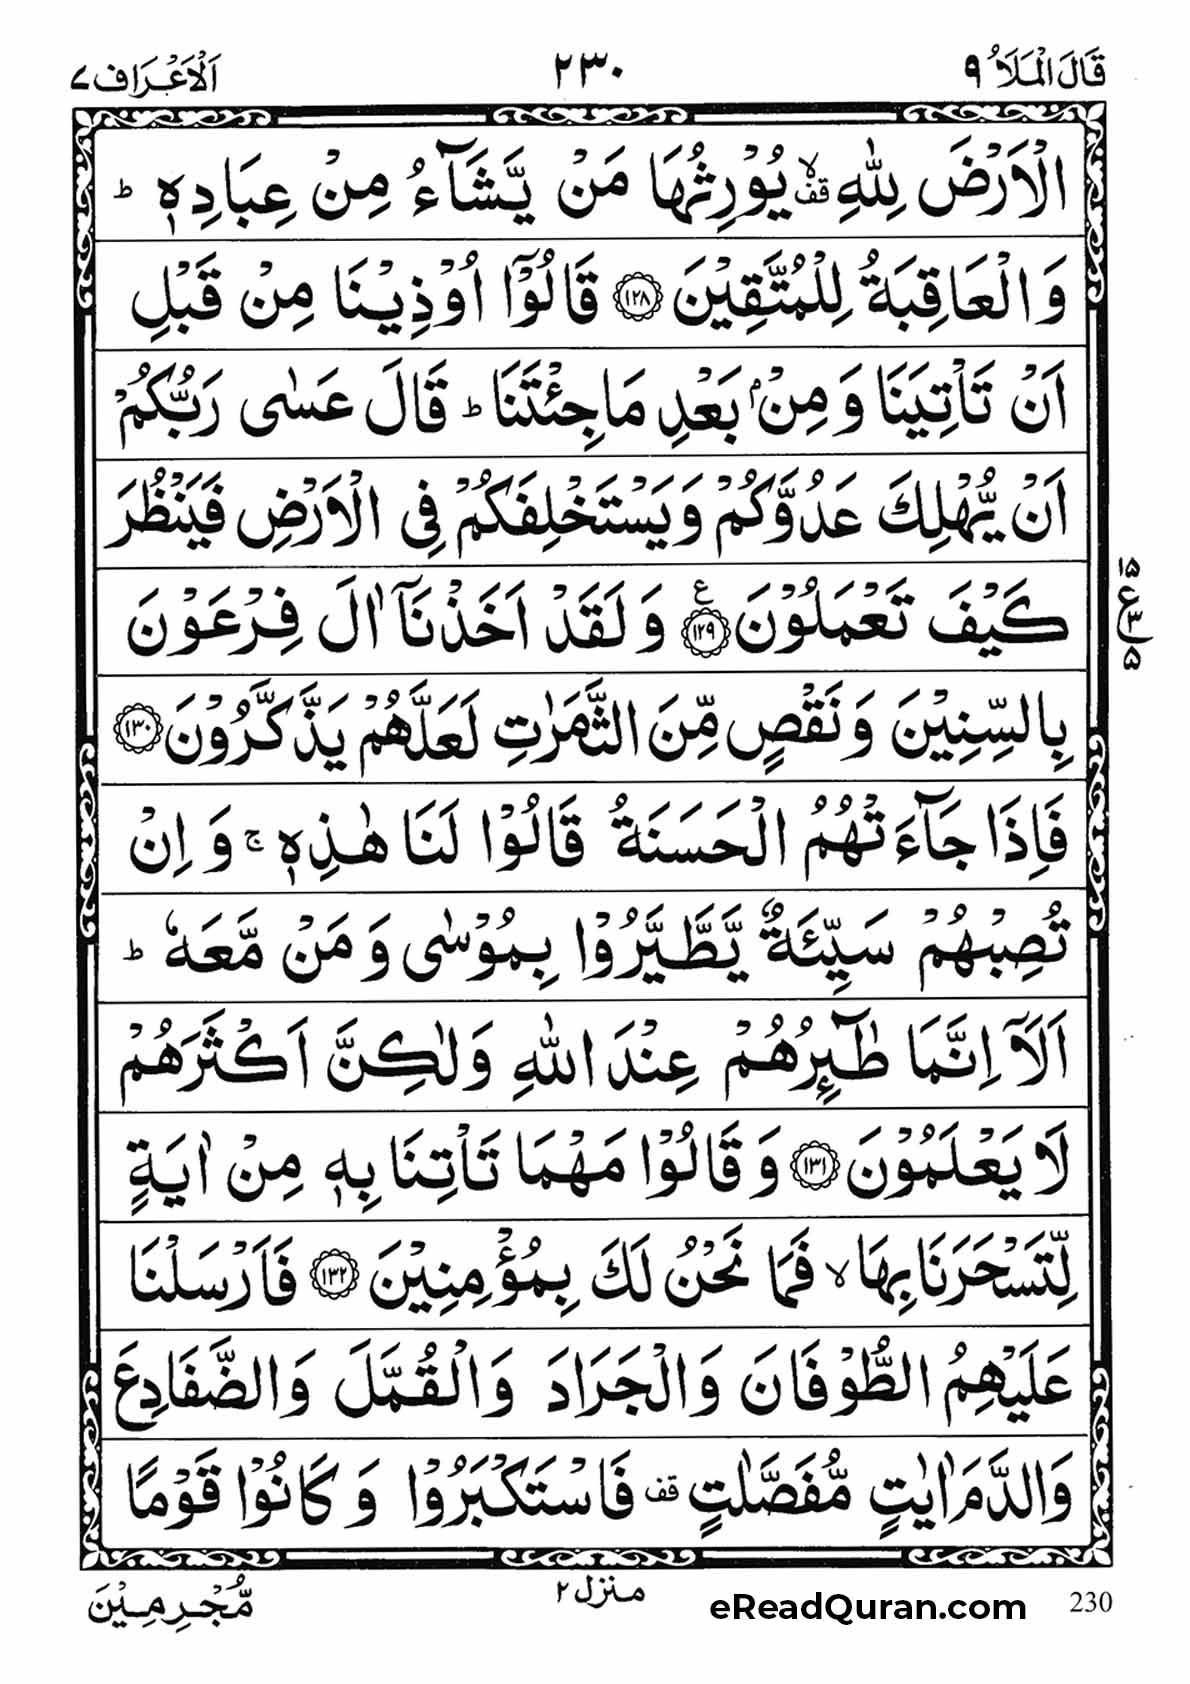 قَالَ الْمَلَاُ ۹
۲۳۰
اَلْاَعْرَاف ۷
الْاَرْضَ لِلّٰهِ ۙ قف يُوْرِثُهَا مَنْ يَّشَآءُ مِنْ عِبَادِهٖ ؕ
وَالْعَاقِبَةُ لِلْمُتَّقِيْنَ ﴿۱۲۸﴾ قَالُوْٓا اُوْذِيْنَا مِنْ قَبْلِ
اَنْ تَاْتِيَنَا وَ مِنْۢ بَعْدِ مَا جِئْتَنَا ؕ قَالَ عَسٰى رَبُّكُمْ
اَنْ يُّهْلِكَ عَدُوَّكُمْ وَيَسْتَخْلِفَكُمْ فِى الْاَرْضِ فَيَنْظُرَ
كَيْفَ تَعْمَلُوْنَ ﴿۱۲۹﴾ ع وَلَقَدْ اَخَذْنَآ اٰلَ فِرْعَوْنَ
بِالسِّنِيْنَ وَ نَقْصٍ مِّنَ الثَّمَرٰتِ لَعَلَّهُمْ يَذَّكَّرُوْنَ ﴿۱۳۰﴾
فَاِذَا جَآءَتْهُمُ الْحَسَنَةُ قَالُوْا لَنَا هٰذِهٖ ۚ وَ اِنْ
تُصِبْهُمْ سَيِّئَةٌ يَّطَّيَّرُوْا بِمُوْسٰى وَ مَنْ مَّعَهٗ ؕ
اَلَآ اِنَّمَا طٰٓئِرُهُمْ عِنْدَ اللّٰهِ وَلٰكِنَّ اَكْثَرَهُمْ
لَا يَعْلَمُوْنَ ﴿۱۳۱﴾ وَ قَالُوْا مَهْمَا تَاْتِنَا بِهٖ مِنْ اٰيَةٍ
لِّتَسْحَرَنَا بِهَا ۙ فَمَا نَحْنُ لَكَ بِمُؤْمِنِيْنَ ﴿۱۳۲﴾ فَاَرْسَلْنَا
عَلَيْهِمُ الطُّوْفَانَ وَالْجَرَادَ وَالْقُمَّلَ وَالضَّفَادِعَ
وَالدَّمَ اٰيٰتٍ مُّفَصَّلٰتٍ قف فَاسْتَكْبَرُوْا وَ كَانُوْا قَوْمًا
۱۵
ع ۳
۵
مُّجْرِمِيْنَ
منزل ۲
eReadQuran.com
230